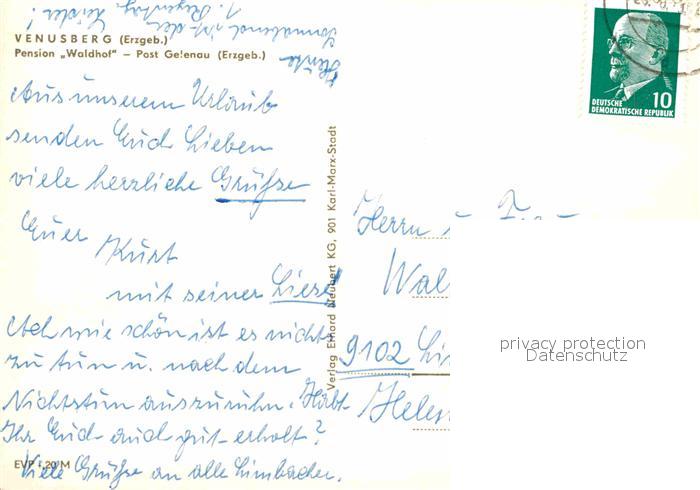 1. Regentag. Leider!
Sonnabend ist der
Heute
VENUSBERG (Erzgeb.)
Pension „Waldhof" – Post Gelenau (Erzgeb.)
Aus unserem Urlaub
senden Euch Lieben
viele herzliche Grüße
Euer
Kurt
mit seiner Liesel
Ach wie schön ist es nichts
zu tun u. nach dem
Nichtstun auszuruhn. Habt
Ihr Euch auch gut erholt?
Viele Grüße an alle Limbacher.
EVP -,20 M
Verlag Erhard Neubert KG, 901 Karl-Marx-Stadt
DEUTSCHE
DEMOKRATISCHE REPUBLIK
10
Herrn u.
Wal
9102 Li
Helen
privacy protection
Datenschutz